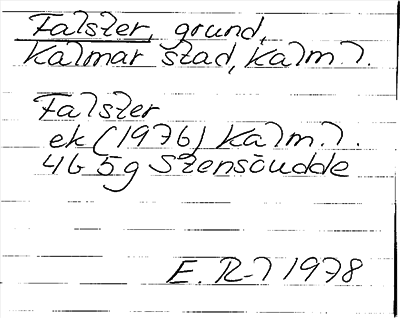 Falster, grund,
Kalmar stad, Kalm. l.
Falster
ek (1976) Kalm. l.
4G 5g Stensöudde
E. R-l 1978